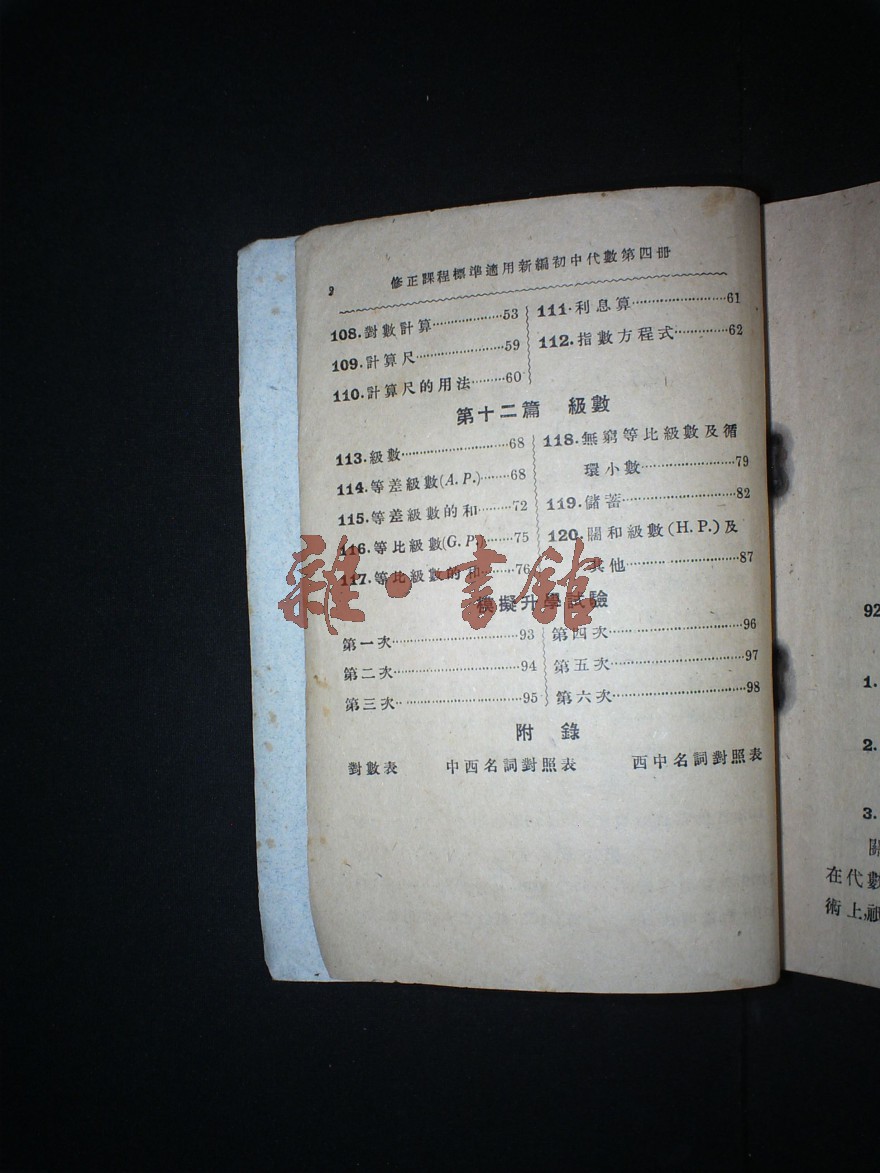 2
修正課程標準適用新編初中代數第四冊
108.對數計算……………………53
109.計算尺……………………59
110.計算尺的用法………60
111.利息算……………………61
112.指數方程式……………62
第十二篇 級數
113.級數……………………68
114.等差級數(A. P.)………68
115.等差級數的和………72
116.等比級數(G. P.)………75
117.等比級數的和………76
118.無窮等比級數及循
環小數……………………79
119.儲蓄……………………82
120.關和級數(H. P.)及
其他……………………87
模擬升學試驗
第一次……………………93
第二次……………………94
第三次……………………95
第四次……………………96
第五次……………………97
第六次……………………98
附 錄
對數表 中西名詞對照表 西中名詞對照表
雜·書館
92
1.
2.
3.
關
在代數
術上,祇